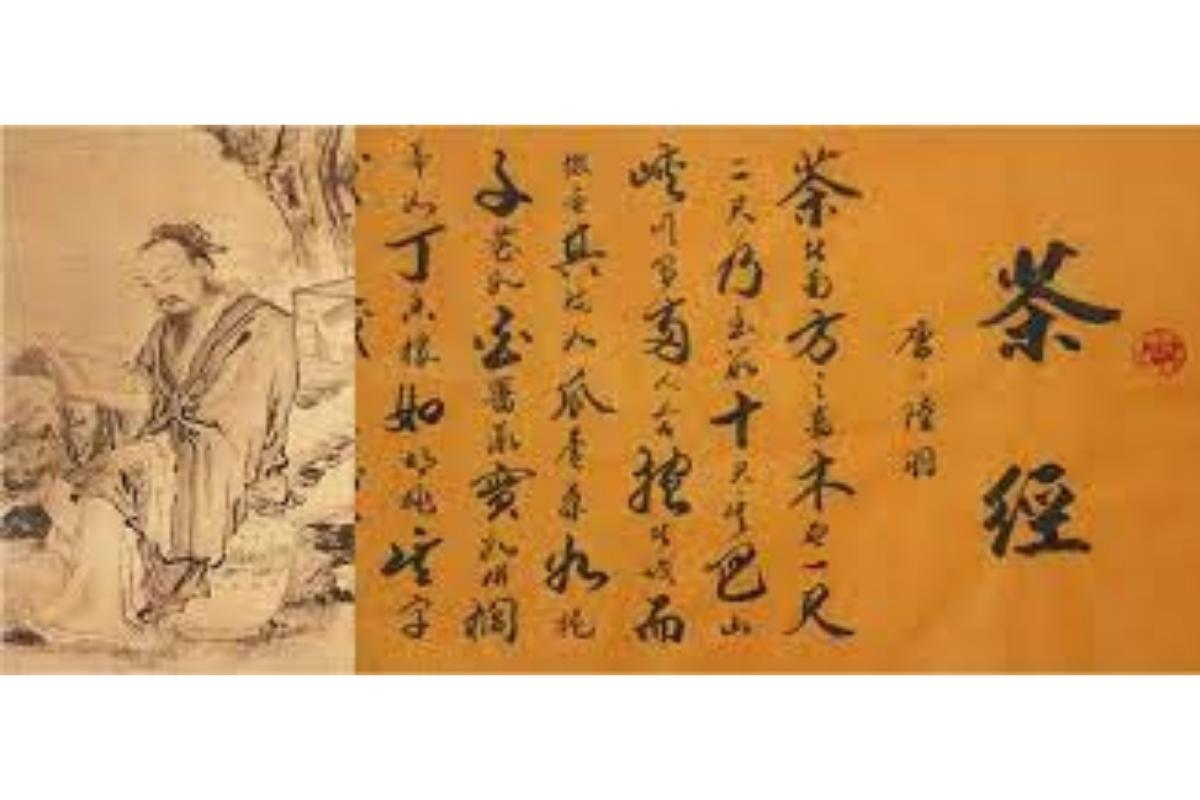 茶經
唐 陸羽
茶者南方之嘉木也一尺
二尺乃至數十尺其巴山
峽川有兩人合抱者伐而
掇之其樹如瓜蘆葉如梔
子花如白薔薇實如栟櫚
蒂如丁香根如胡桃其字